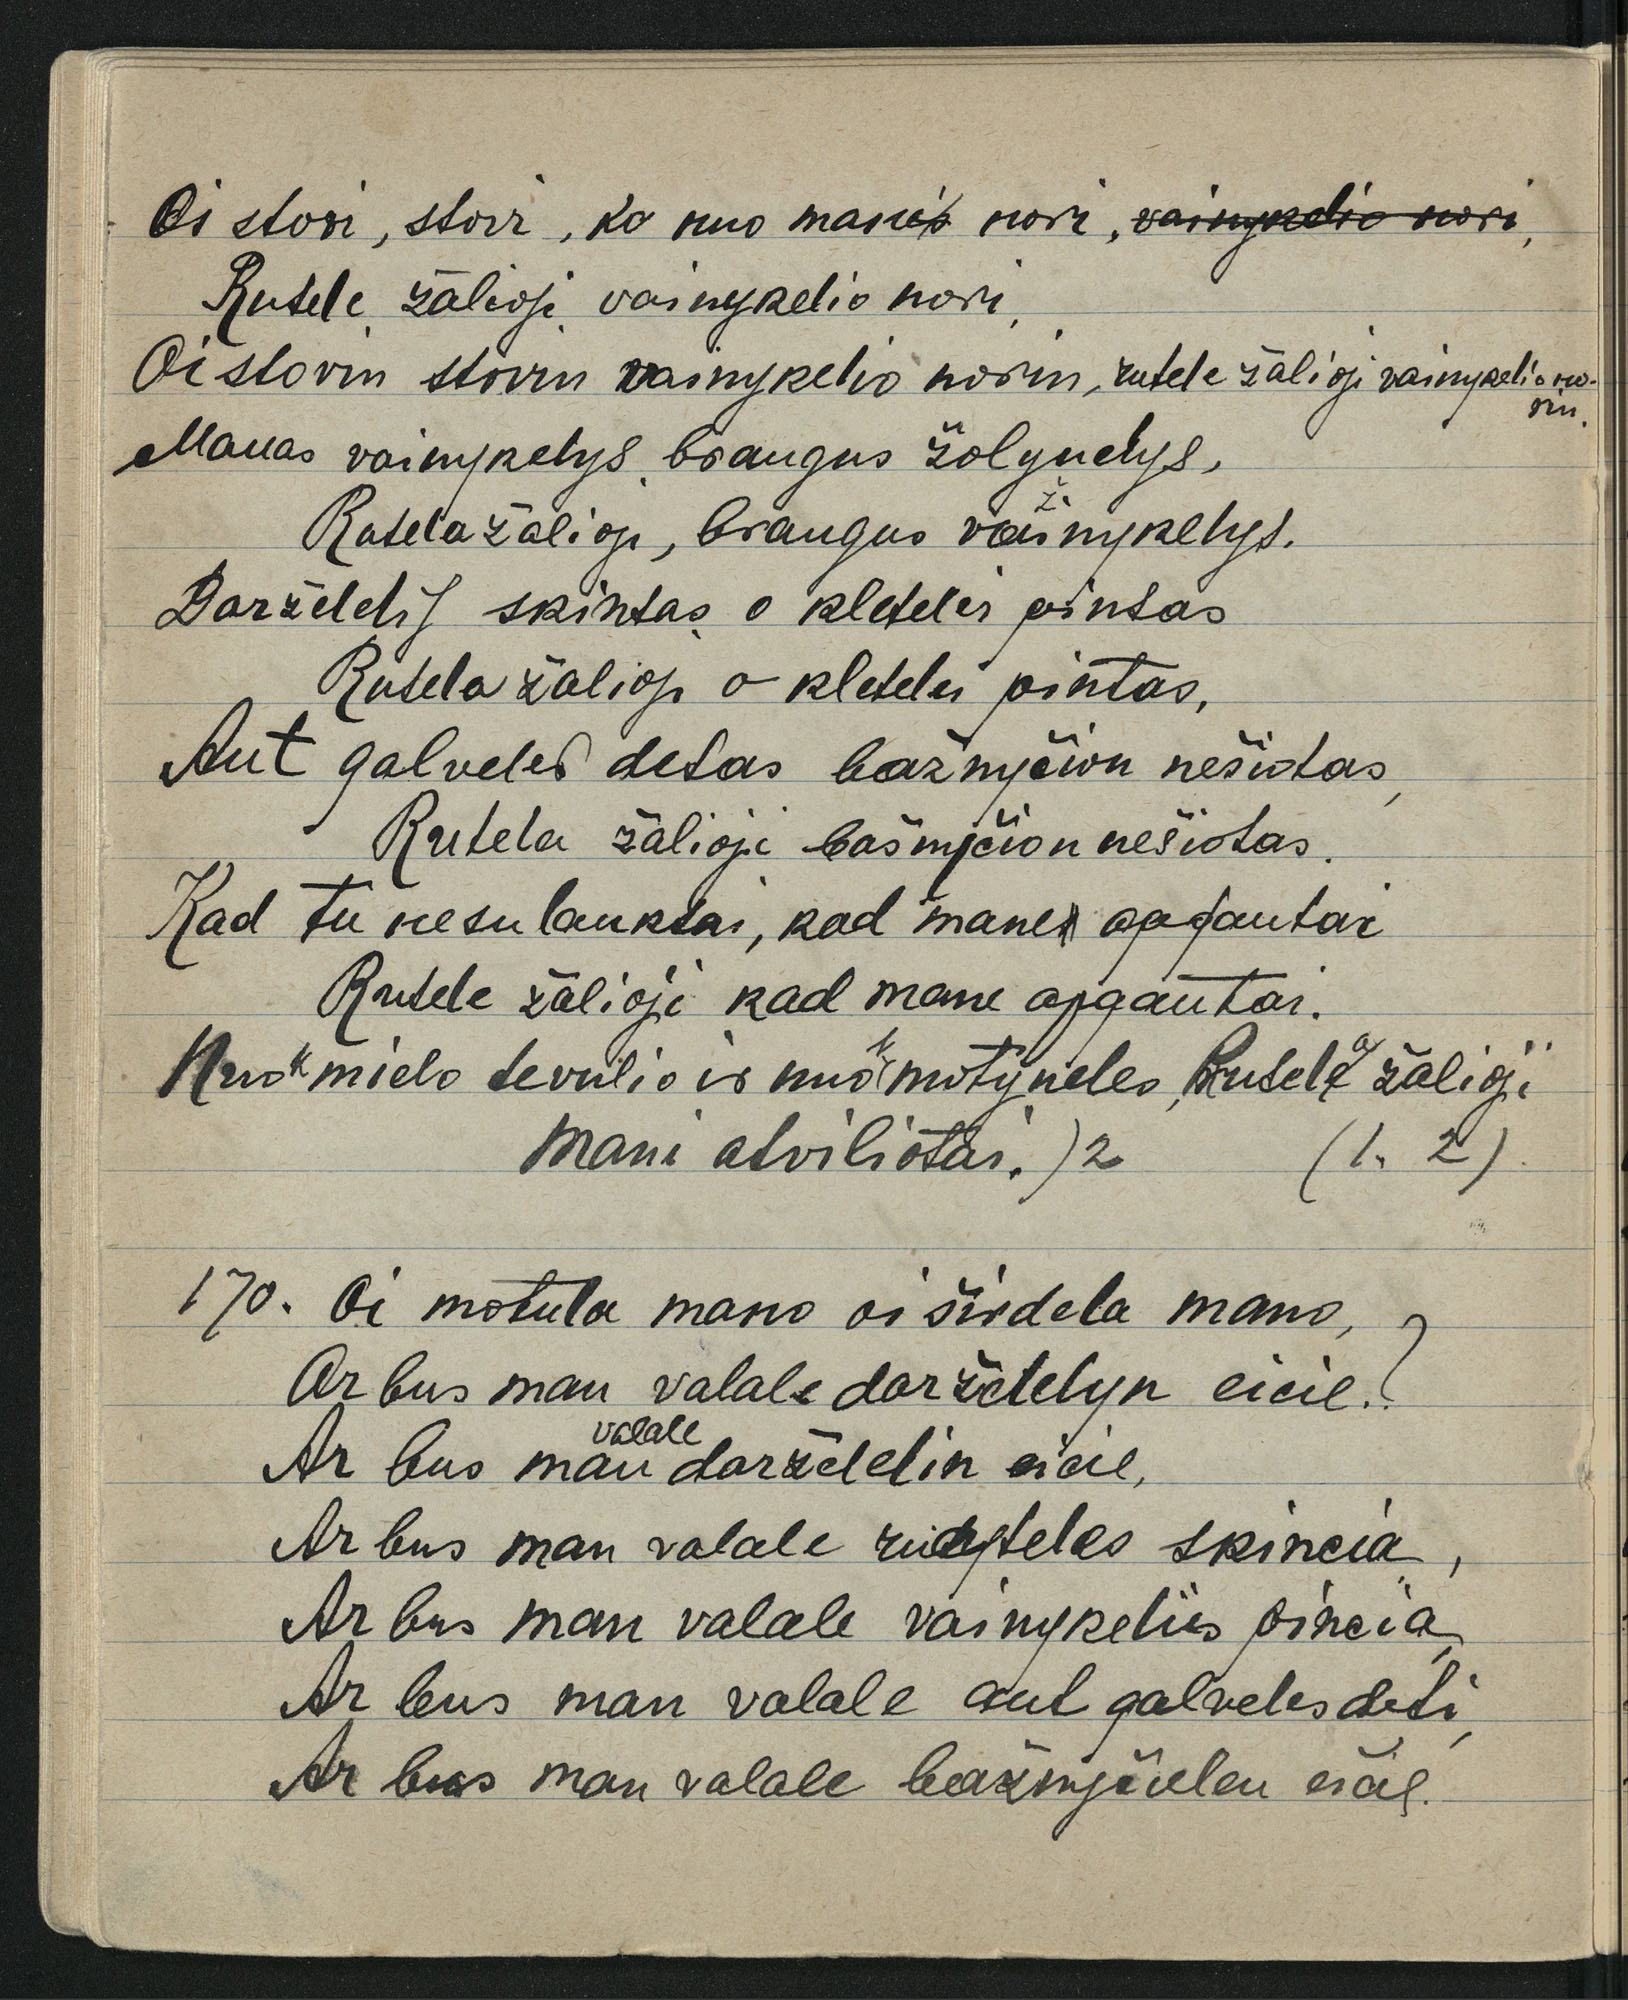 Oi stovi, stovi, ko nuo manis nori, vainykelio nori,
Rutele žalioji vainykelio nori,
Oi stovin stovin vainykelio norin, rutele žalioji vainykelio no-
rin.
Manas vainykelys brangus žolynelys,
Rutela žalioji, brangus vainykelys.
Darželeli skintas o kleteler pintas
Rutela žalioji o kletelei pintas,
Ant galveles detas bažnyčion nešiotas,
Rutela žalioji bašnyčion nešiotas.
Kad tu nesulauktai, kad mane apgautai
Rutele žalioji kad mane apgautai.
Nuo mielo tevulio ir nuo motyneles, Rutela žalioji
mani atviliotai.)2 (1. 2)
170. Oi motula mano oi širdela mano,
Ar bus man valale darželelyn eicie.?
Ar bus man valale darželelin eicie,
Ar bus man valale ruteles skincia,
Ar bus man valale vainykelius pincia,
Ar bus man valale ant galveles deti,
Ar bus man valale bažnyčiulen eicie.